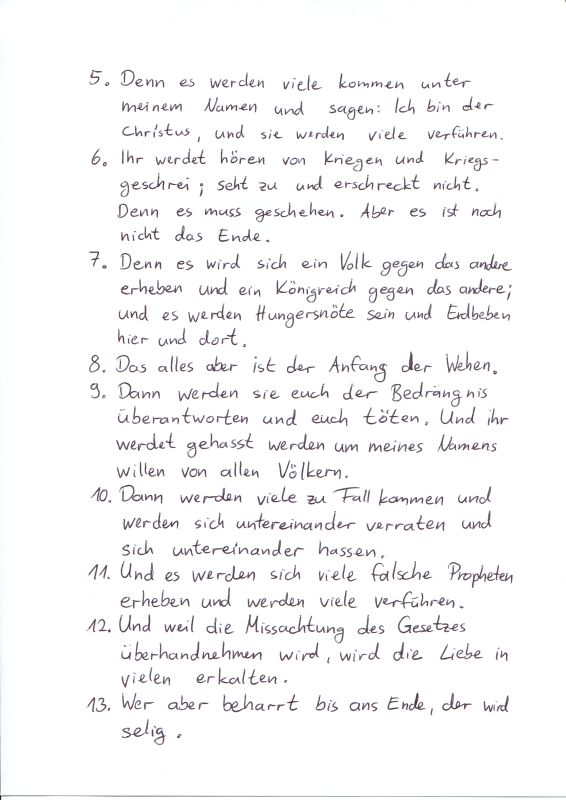 5. Denn es werden viele kommen unter
meinem Namen und sagen: Ich bin der
Christus, und sie werden viele verführen.
6. Ihr werdet hören von Kriegen und Kriegs-
geschrei; seht zu und erschreckt nicht.
Denn es muss geschehen. Aber es ist noch
nicht das Ende.
7. Denn es wird sich ein Volk gegen das andere
erheben und ein Königreich gegen das andere;
und es werden Hungersnöte sein und Erdbeben
hier und dort.
8. Das alles aber ist der Anfang der Wehen.
9. Dann werden sie euch der Bedrängnis
überantworten und euch töten. Und ihr
werdet gehasst werden um meines Namens
willen von allen Völkern.
10. Dann werden viele zu Fall kommen und
werden sich untereinander verraten und
sich untereinander hassen.
11. Und es werden sich viele falsche Propheten
erheben und werden viele verführen.
12. Und weil die Missachtung des Gesetzes
überhandnehmen wird, wird die Liebe in
vielen erkalten.
13. Wer aber beharrt bis ans Ende, der wird
selig.